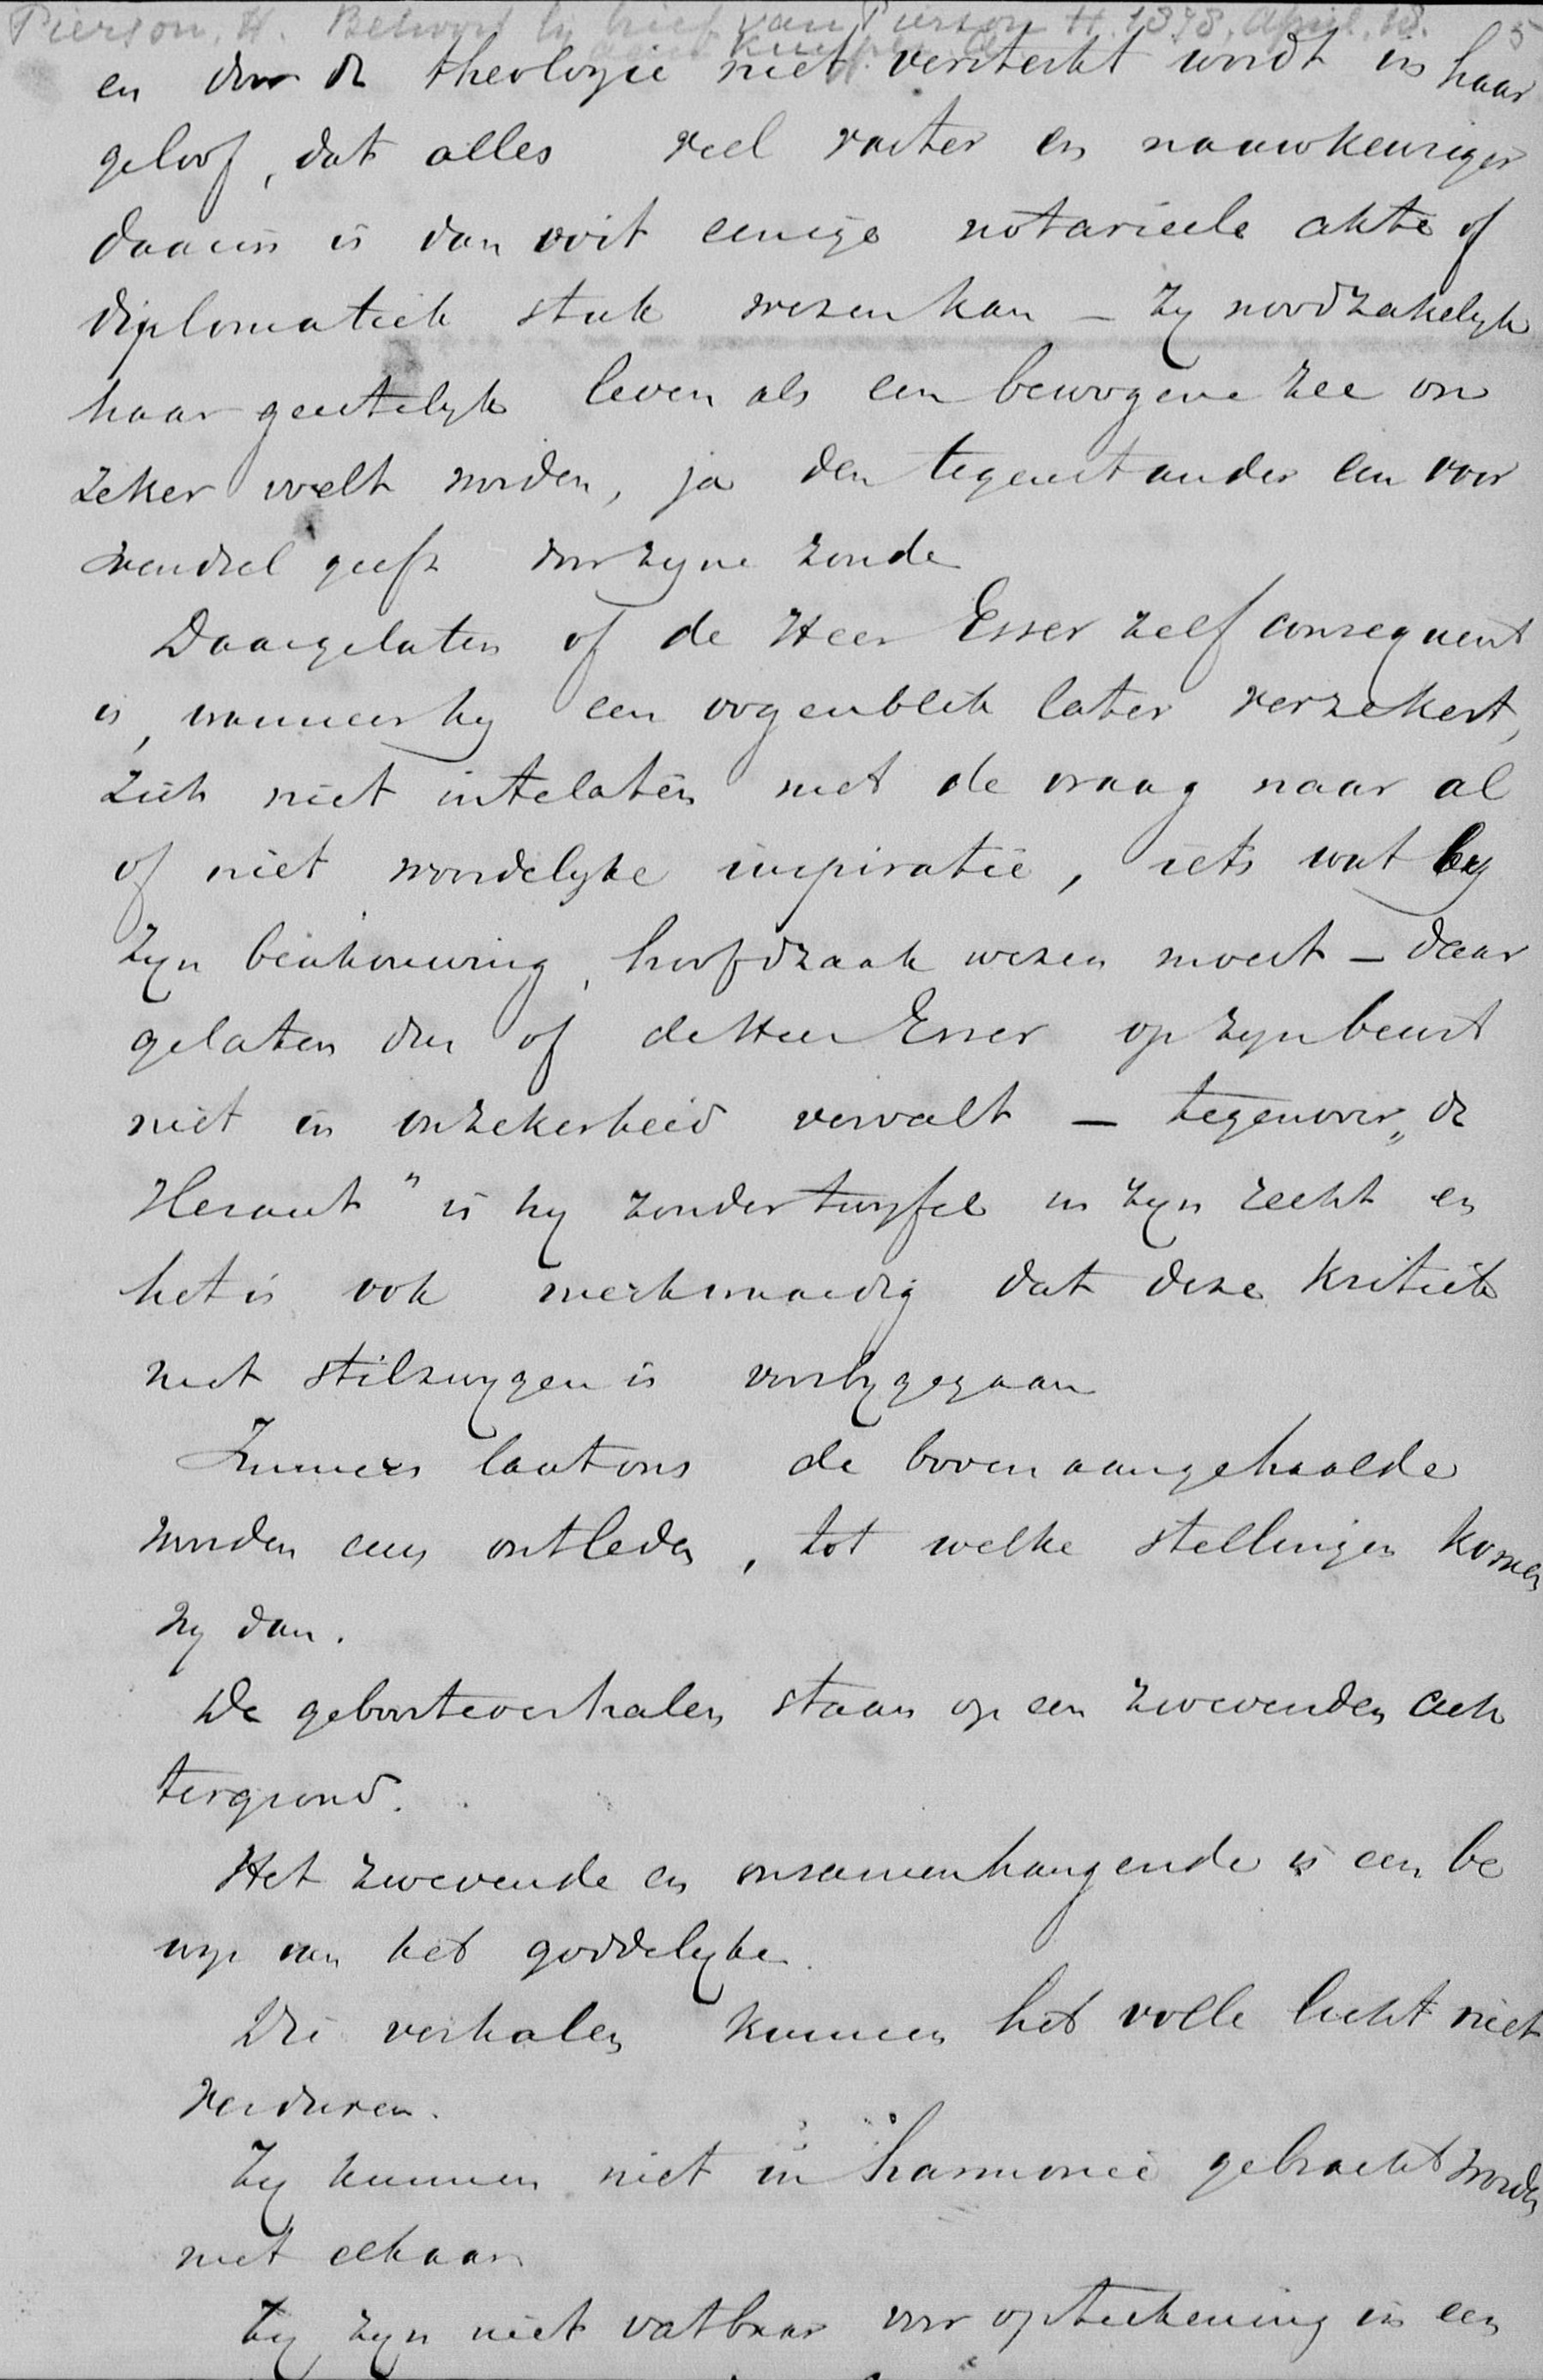 Pierson, H. Behoort bij brief van Pierson H. 1878, April, 18. 5
aan Kuyper A.
en door de theologie niet versterkt wordt in haar
geloof, dat alles veel vaster en naauwkeuriger
daarin is dan ooit eenige notarieele akte of
diplomatiek stuk wezen kan – zy noodzakelyk
haar geestelyk leven als een bewogene zee on
zeker voelt worden, ja den tegenstander een voor
wendsel geeft voor zyne zonde
Daargelaten of de Heer Esser zelf consequent
is, wanneer hy een oogenblik later verzekert,
zich niet intelaten met de vraag naar al
of niet woordelyke inspiratie, iets wat by
zyn beschouwing, hoofdzaak wezen moest – daar
gelaten dus of de Heer Esser op zyn beurt
niet in onzekerheid vervalt – tegenover „de
Heraut" is hy zonder twyfel in zyn recht en
het is ook merkwaardig dat deze Kritiek
met stilzwygen is voorbygegaan
Immers laat ons de boven aangehaalde
woorden eens ontleden, tot welke stellingen komen
wy dan.
De geboorteverhalen staan op een zwevenden ach
tergrond.
Het zwevende en onsamenhangende is een be
wys van het goddelyke.
Die verhalen kunnen het volle licht niet
verduren.
Zy kunnen niet in harmonie gebracht worden
met elkaar
Zy zyn niet vatbaar voor opteekening in een